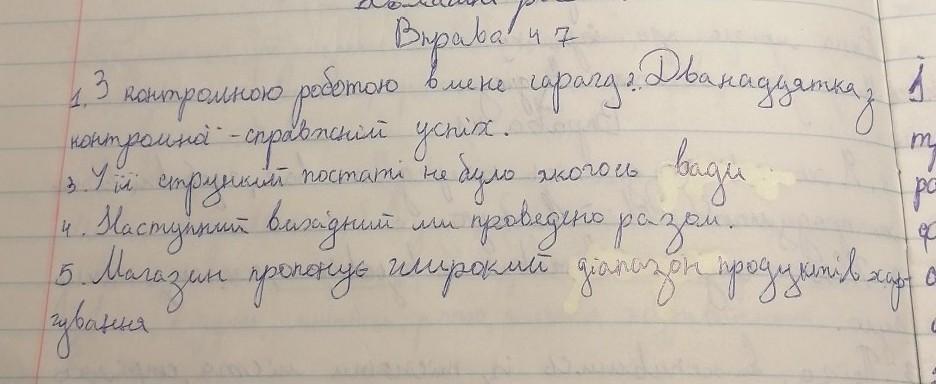 Домашня
Вправа ч 7
1. З контрольною роботою в мене гаразд 2. Дванадцятка з
контрольної - справжній успіх.
3. У її стрункій постаті не було якогось вади
4. Наступний вихідний ми проведемо разом.
5. Магазин пропонує широкий діапазон продуктів хар-
чування